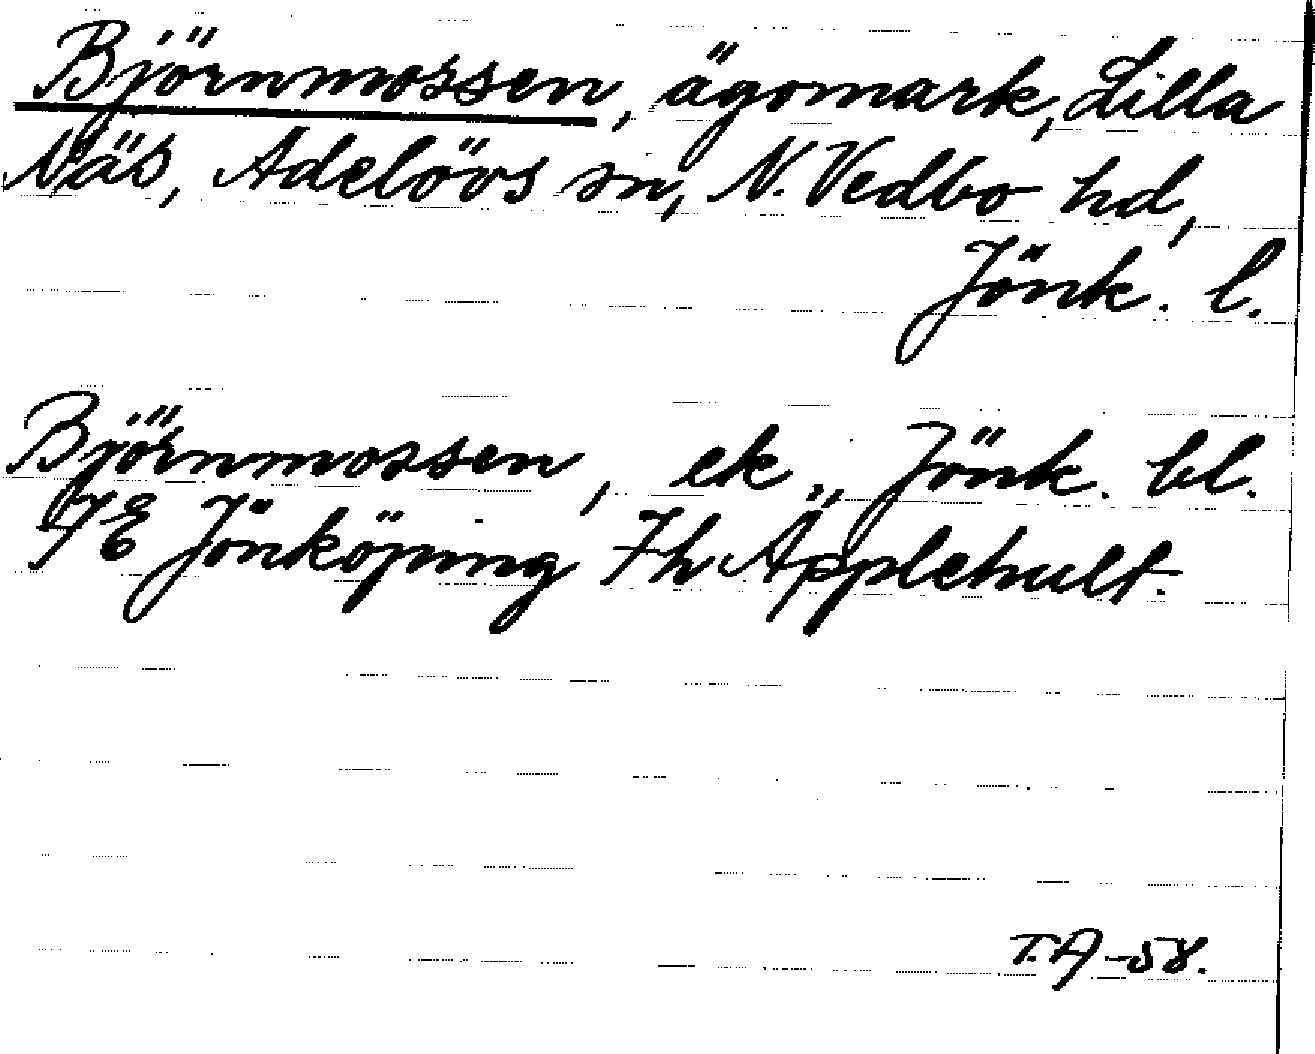 Björnmossen, ägomark, Lilla
Näs, Adelövs sn, N. Vedbo hd,
Jönk. l.
Björnmossen, ek., Jönk. bl.
7E Jönköping 7h Äpplehult.
T.A -58.